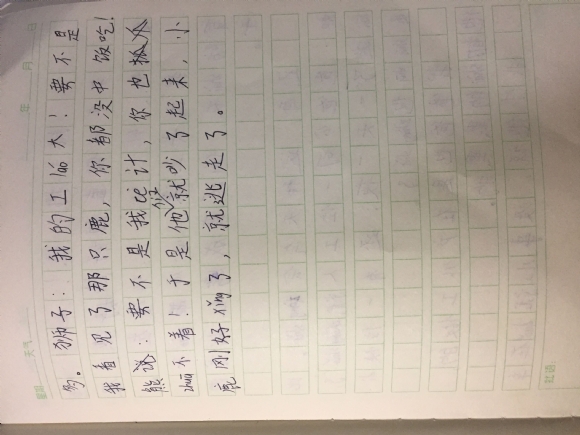 星期 天气 年 月 日
多。狮子：我的工láo大！要不是
我看见了那只鹿，你都没中饭吃！
熊说：要不是我cè计，你也
zhuā不着！于是他就吵了起来，小
鹿刚好xǐng了，就逃走了。
批语：